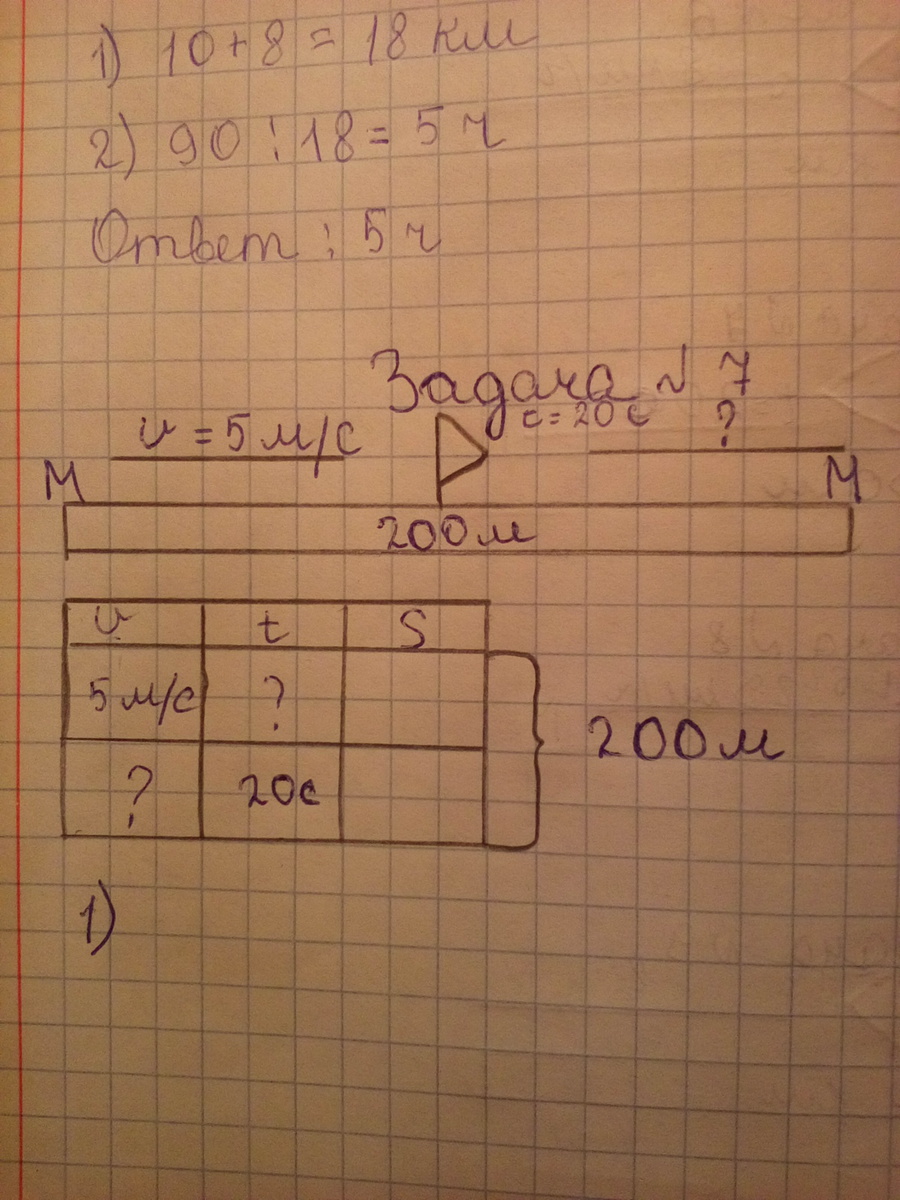 1) 10 + 8 = 18 км
2) 90 : 18 = 5 ч
Ответ : 5 ч
Задача № 7
v = 5 м/с
t = 20 с
?
М
М
200 м
v t S
5 м/с ?
? 20с
200 м
1)